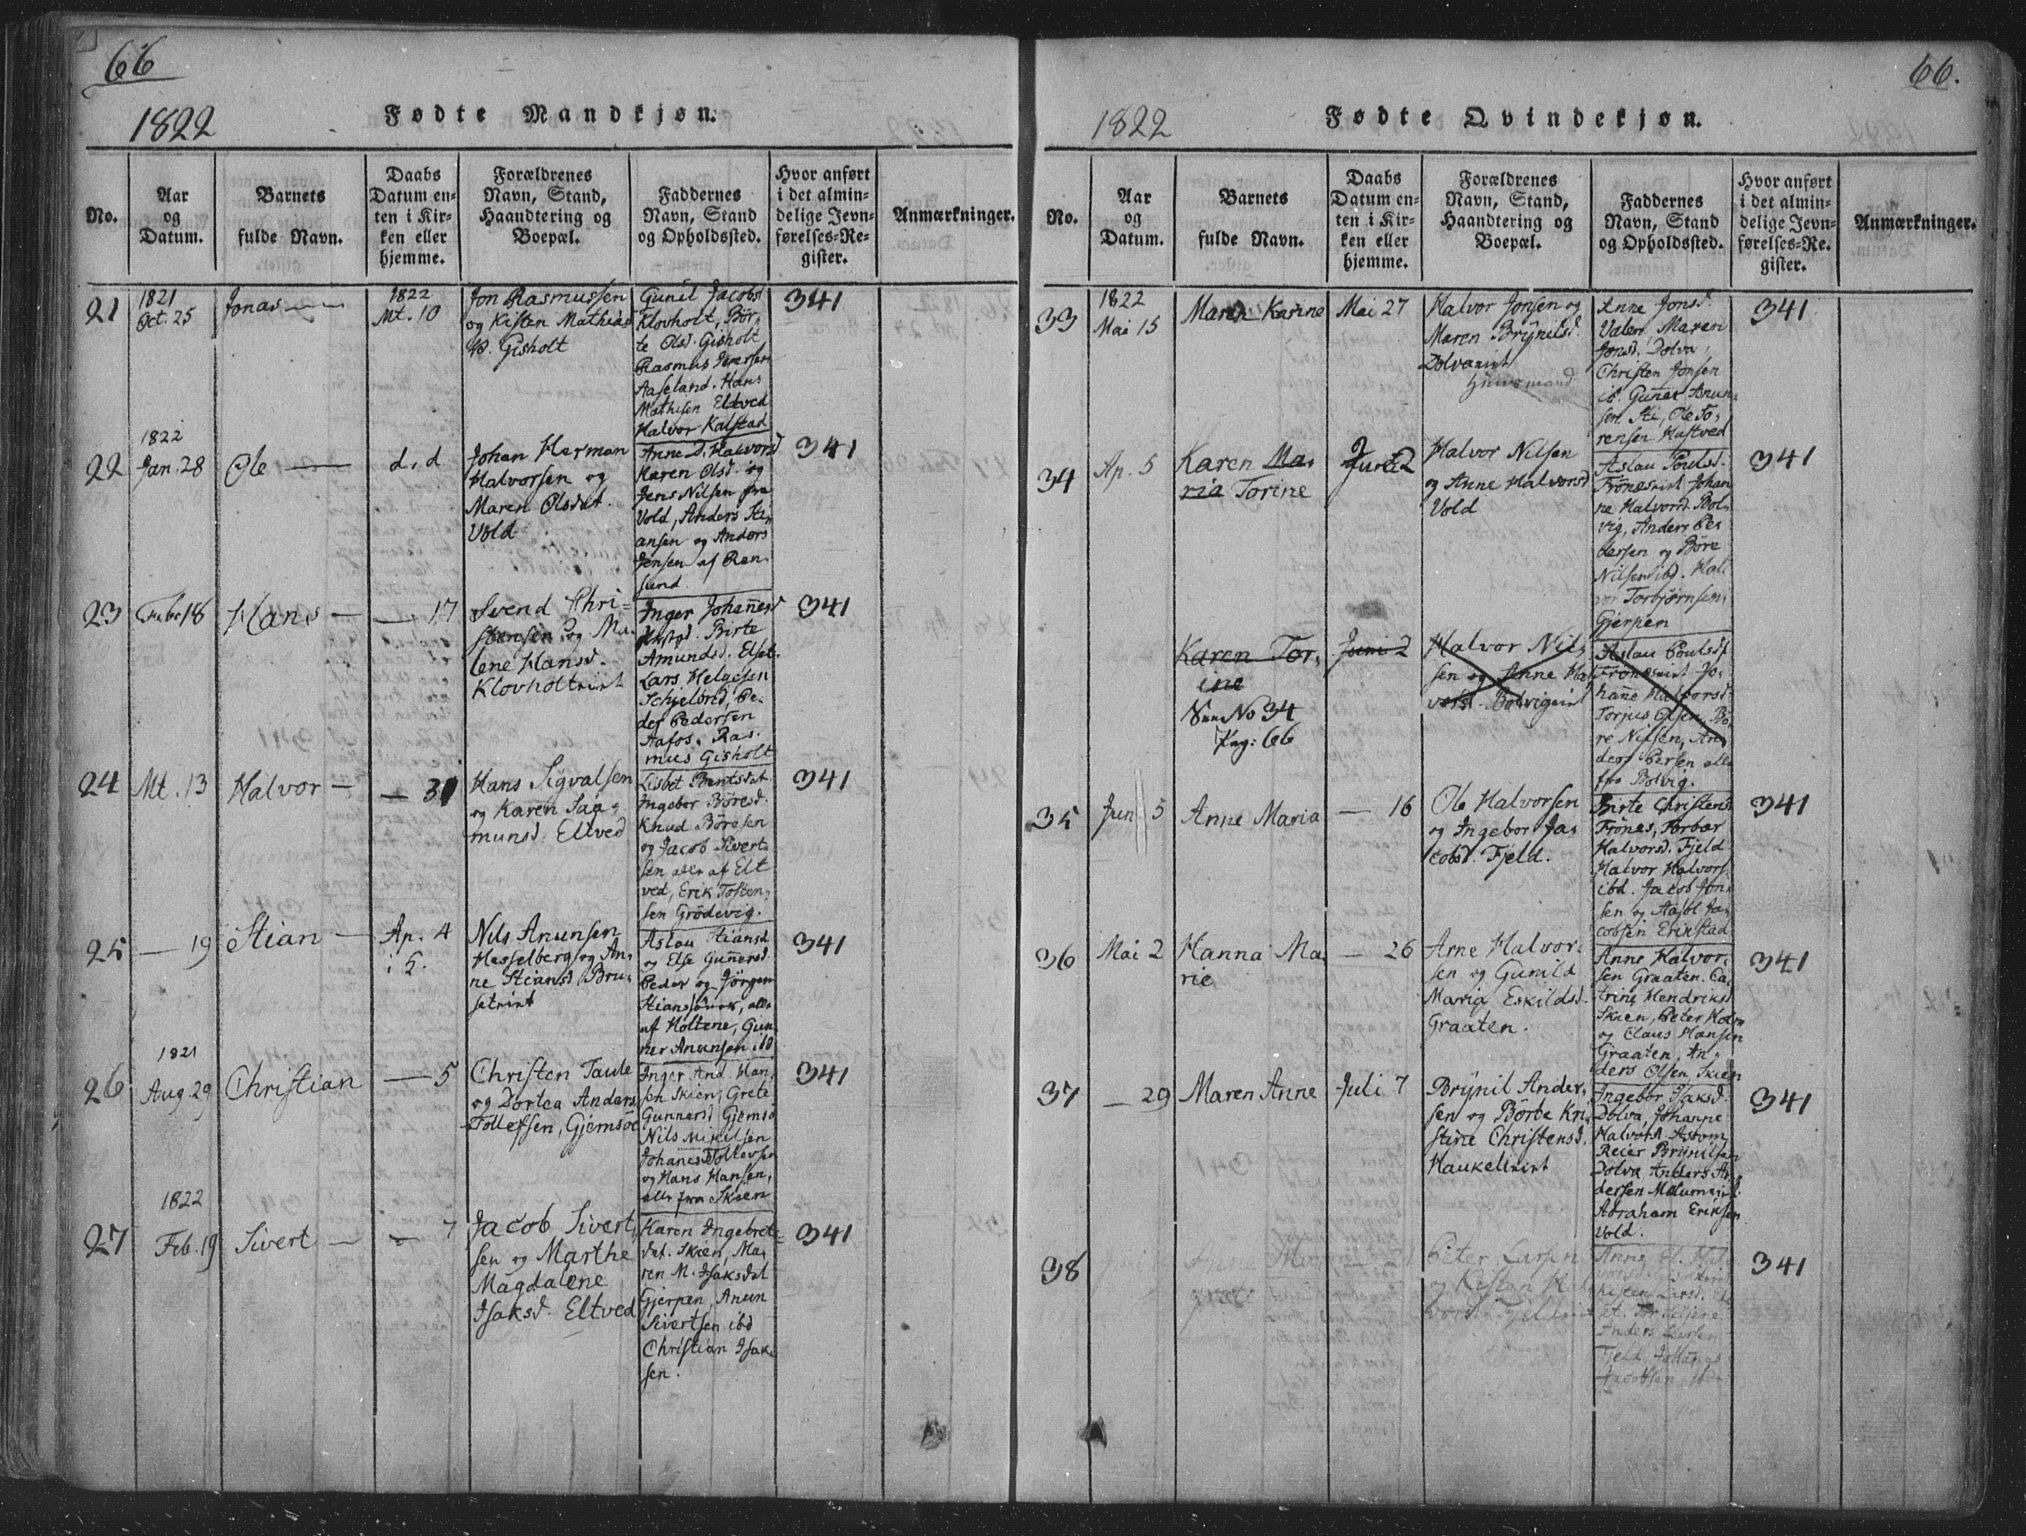 66
1822
Fødte Mandkjøn.
No.
Aar
og
Datum.
Barnets
fulde Navn.
Daabs
Datum en-
ten i Kir-
ken eller
hjemme.
Forældrenes
Navn, Stand,
Haandtering og
Boepæl.
Faddernes
Navn, Stand
og Opholdssted.
Hvor anført
i det almin-
delige Jevn-
førelses-Re-
gister.
Anmærkninger.
21
1821
Oct. 25
Jonas
1822
Mt. 10
Jon Rasmussen
og Kisten Mathias
D. Gisholt
Gunil Jacobsd
Klovholt, Bör-
te Olsd. Gisholt
Rasmus Iversen
Aaseland. Hans
Mathisen Eltved
Halvor Kalstad
341
22
1822
Jan. 28
Ole
d. d
Johan Herman
Halvorsen og
Maren Olsdat.
Vold
Anne D. Halvorsd
Karen Olsd. og
Jens Nilsen fra
Vold, Anders Sti-
ansen og Anders
Jensen af Ren-
sund.
341
23
Febr 18
Hans
17
Svend Chri-
stensen og Ma-
lene Hansd.
Klovholteiet
Inger Johannesd
Birte
Amundsd. Elset.
Lars Helgesen
Schjelsnd, Pe-
der Pedersen
Aafos. Ras-
mus Gisholt
341
24
Mt. 13
Halvor
31
Hans Sigvalsen
og Karen Saa-
munsd. Eltved
Lisbet Bentsdat.
Ingebor Böresd.
Knud Böresen
og Jacob Sivert-
sen alle af Elt
ved, Erik Tosten-
sen Grödevig.
341
25
19
Stian
Ap. 4
i 5.
Nils Anunsen
Hesselberg og An-
ne Stiansd Bru-
seteiet
Aslau Stiansd
og Else Gunnersd.
Peder og Jörgen
Stians, alle
af Holtene, Gun
ner Anunsen ibd
341
26
1821
Aug. 29
Christian
5
Christen Taule
og Dortea Anders
Tollefsen, Gjemsöe
Inger And. Han-
sen Skien, Grete
Gunnersd. Gjemsö
Nils Mikelsen
Johanes Tollevsen
og Hans Hansen,
alle fra Skien
341
27
1822
Feb. 19
Sivert
7
Jacob Sivert-
sen og Marthe
Magdalene
Isaksd. Eltved
Karen Ingebret-
dat. Skien, Ma-
ren M. Isaksdat
Gjerpen, Anun
Sivertsen ibd
Christian Isak-
sen.
341
66.
1822
Fødte Qvindekjøn.
No.
Aar
og
Datum.
Barnets
fulde Navn.
Daabs
Datum en-
ten i Kir-
ken eller
hjemme.
Forældrenes
Navn, Stand,
Haandtering og
Boepæl.
Faddernes
Navn, Stand
og Opholdssted.
Hvor anført
i det almin-
delige Jevn-
førelses-Re-
gister.
Anmærkninger.
33
1822
Mai 15
Maren Karine
Mai 27
Halvor Jonsen og
Maren Brynilsd.
Dolvaeiet
Huusmand
Anne Jonsd.
Valer, Maren
Jonsd. Dolva,
Christen Jonsen
ib. Guner Anun-
sen Sti, Ole To-
rensen Hustved
341
34
Ap. 5
Karen Ma-
ria Torine
Juni 2
Halvor Nilsen
og Anne Halvorsd
Vold
Aslau Poulsd.
Fröneseiet Johan
ne Halvorsd Bol-
vig, Anders Pe-
dersen og Böre
Nilsen ibd. Hal-
vor Torbjörnsen,
Gjerpen
341
Karen Tor-
ine
See No 34
Pag: 66
Juni 2
Halvor Nil-
sen og Anne Hal
vorsd. Bolvigeiet
Aslau Poulsd
Fröneseiet Jo-
hanne Halvorsd.
Torjus Olsen, Bö-
re Nilsen, An-
ders Persen alle
fra Bolvig.
35
Jun 5
Anne Maria
16
Ole Halvorsen
og Ingebor Ja-
cobsd. Fjeld.
Birte Christensd
Frönes, Torbær
Halvorsd. Fjeld
Halvor Halvors.
ibd. Jacob Jon-
sen og Aasol Ja-
cobsen Erikstad
341
36
Mai 2
Hanna Ma-
rie
26
Arne Halvor-
sen og Gunild
Maria Eskildsd.
Graaten.
Anne Halvor-
sen Graaten. Ca-
trine Hendriksd
Skien, Peter Holm
og Claus Hansen
Graaten, An-
ders Olsen, Skien
341
37
29
Maren Anne
Juli 7
Brynil Ander-
sen og Börte Kri-
stine Christensd.
Haukelieiet
Ingebor Isaksd.
Dolva, Johanne
Halvorsd. Aslum
Reier Brynilsen
Dolva Anders An-
dersen Melumeiet.
Abraham Eriksen
Vold.
341
38
Peter Larsen
og Kisten Hal-
vorsd. Fjeldeiet
Anders Larsen
Fjeld, Johannes
Jacobsen, ibd.
341